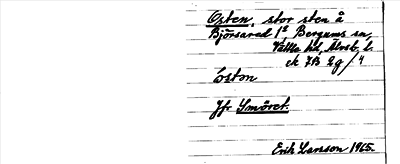 Osten, stor sten å
Björsared 1⁵, Bergums sn,
Vättle hd, Älvsb. l.
ek 7B 2g/4
Oston
Jfr Smöret.
Erik Larsson 1965.